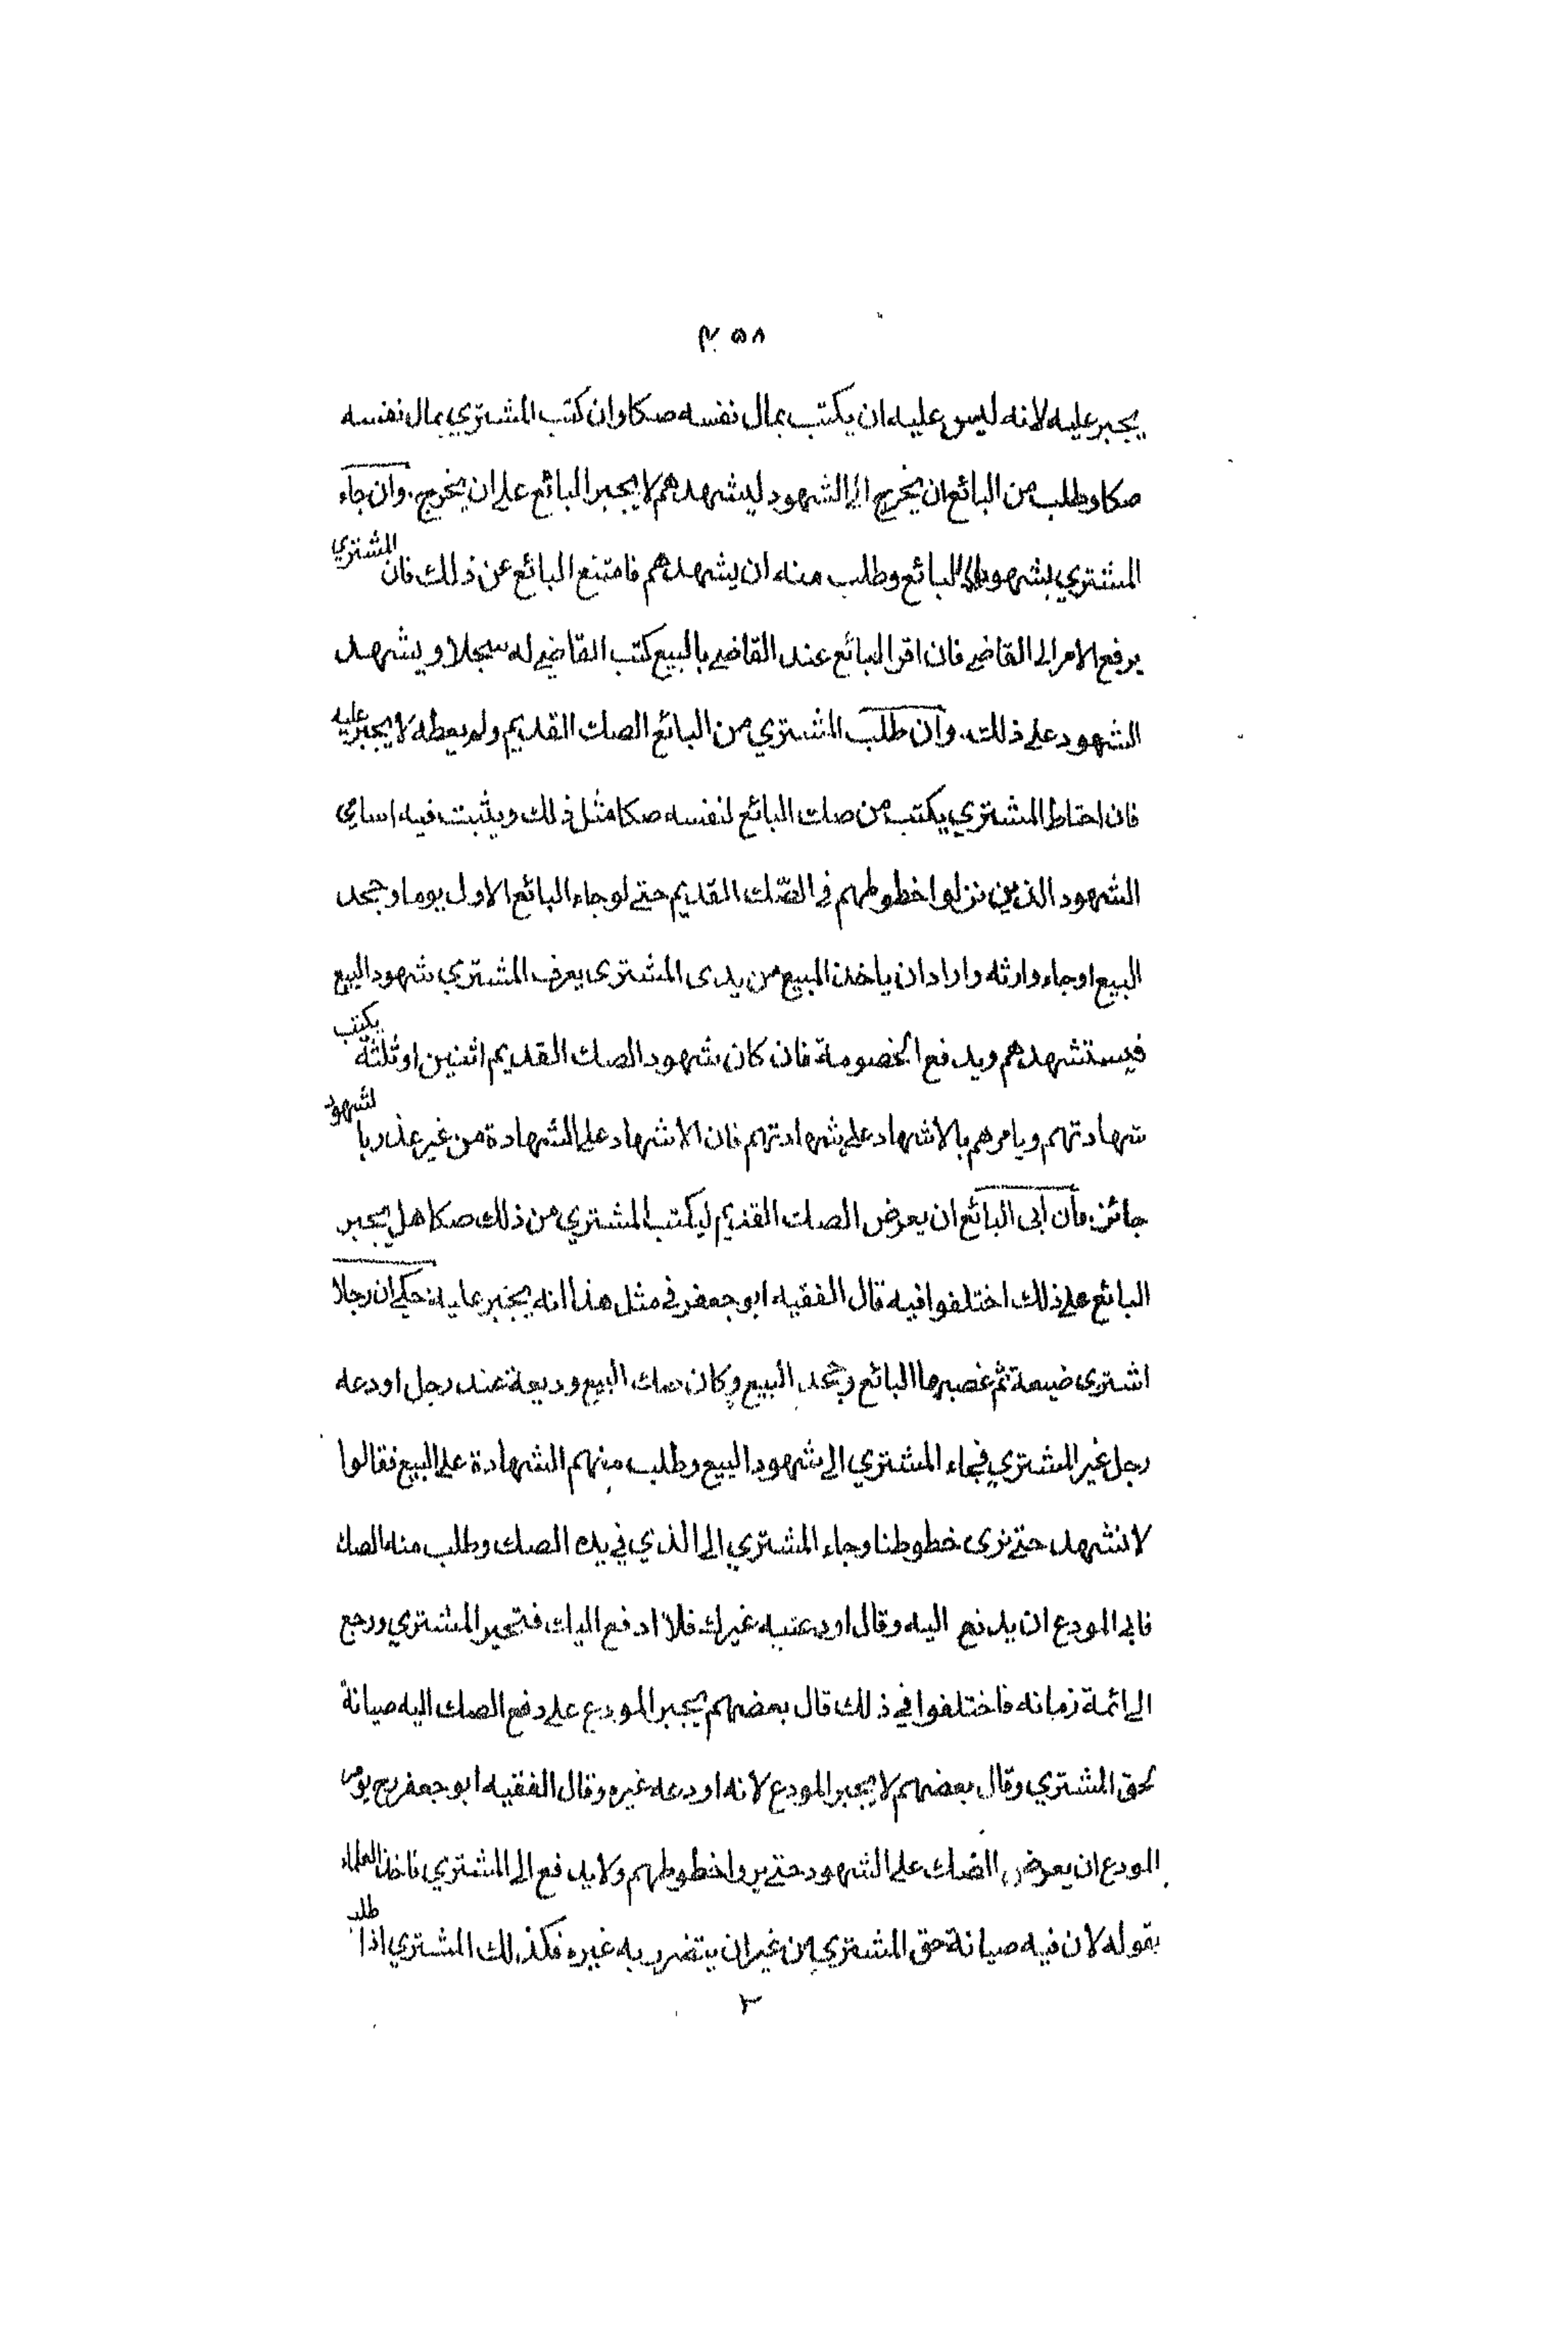 ٣٥٨
يجبر عليه لانه ليس عليه ان يكتب بمال نفسه صكا وان كتب المشتري بمال نفسه
صكا وطلب من البائع ان يخرج الى الشهود ليشهدهم لا يجبر البائع على ان يخرج. وان جاء
المشتري بشهود الى البائع وطلب منه ان يشهدهم فامتنع البائع عن ذلك فان المشتري
يرفع الامر الى القاضي فان اقر البائع عند القاضي بالبيع كتب القاضي له سجلا ويشهد
الشهود على ذلك. وان طلب المشتري من البائع الصك القديم ولم يعطه لا يجبر عليه
فان احتاط المشتري يكتب من صك البائع لنفسه صكا مثل ذلك ويثبت فيه اسامي
الشهود الذين نزلوا خطوطهم في الصك القديم حتى لو جاء البائع الاول يوما وجحد
البيع او جاء وارثه واراد ان ياخذ المبيع من يدى المشترى يعرف المشتري شهود البيع
فيستشهدهم ويدفع الخصومة فان كان شهود الصك القديم اثنين او ثلثة يكتب
شهادتهم ويامرهم بالاشهاد على شهادتهم فان الاشهاد على الشهادة من غير عذر بالشهود
جائز. فان ابى البائع ان يعرض الصك القديم ليكتب المشتري من ذلك صكا هل يجبر
البائع على ذلك اختلفوا فيه قال الفقيه ابو جعفر في مثل هذا انه يجبر عليه. حكي ان رجلا
اشترى ضيعة ثم غصبها البائع وجحد البيع وكان صك البيع وديعة عند رجل اودعه
رجل غير المشتري فجاء المشتري الى شهود البيع وطلب منهم الشهادة على البيع فقالوا
لا نشهد حتى نرى خطوطنا وجاء المشتري الى الذي في يده الصك وطلب منه الصك
فابى المودع ان يدفع اليه وقال اودعنيه غيرك فلا ادفع اليك فتحير المشتري ورجع
الى ائمة زمانه فاختلفوا في ذلك قال بعضهم يجبر المودع على دفع الصك اليه صيانة
لحق المشتري وقال بعضهم لا يجبر المودع لانه اودعه غيره وقال الفقيه ابو جعفر رح يومر
المودع ان يعرض الصك على الشهود حتى يروا خطوطهم ولا يدفع الى المشتري فاخذ العلماء
بقوله لان فيه صيانة حق المشتري من غير ان يتضرر به غيره فكذلك المشتري اذا طلب
٢